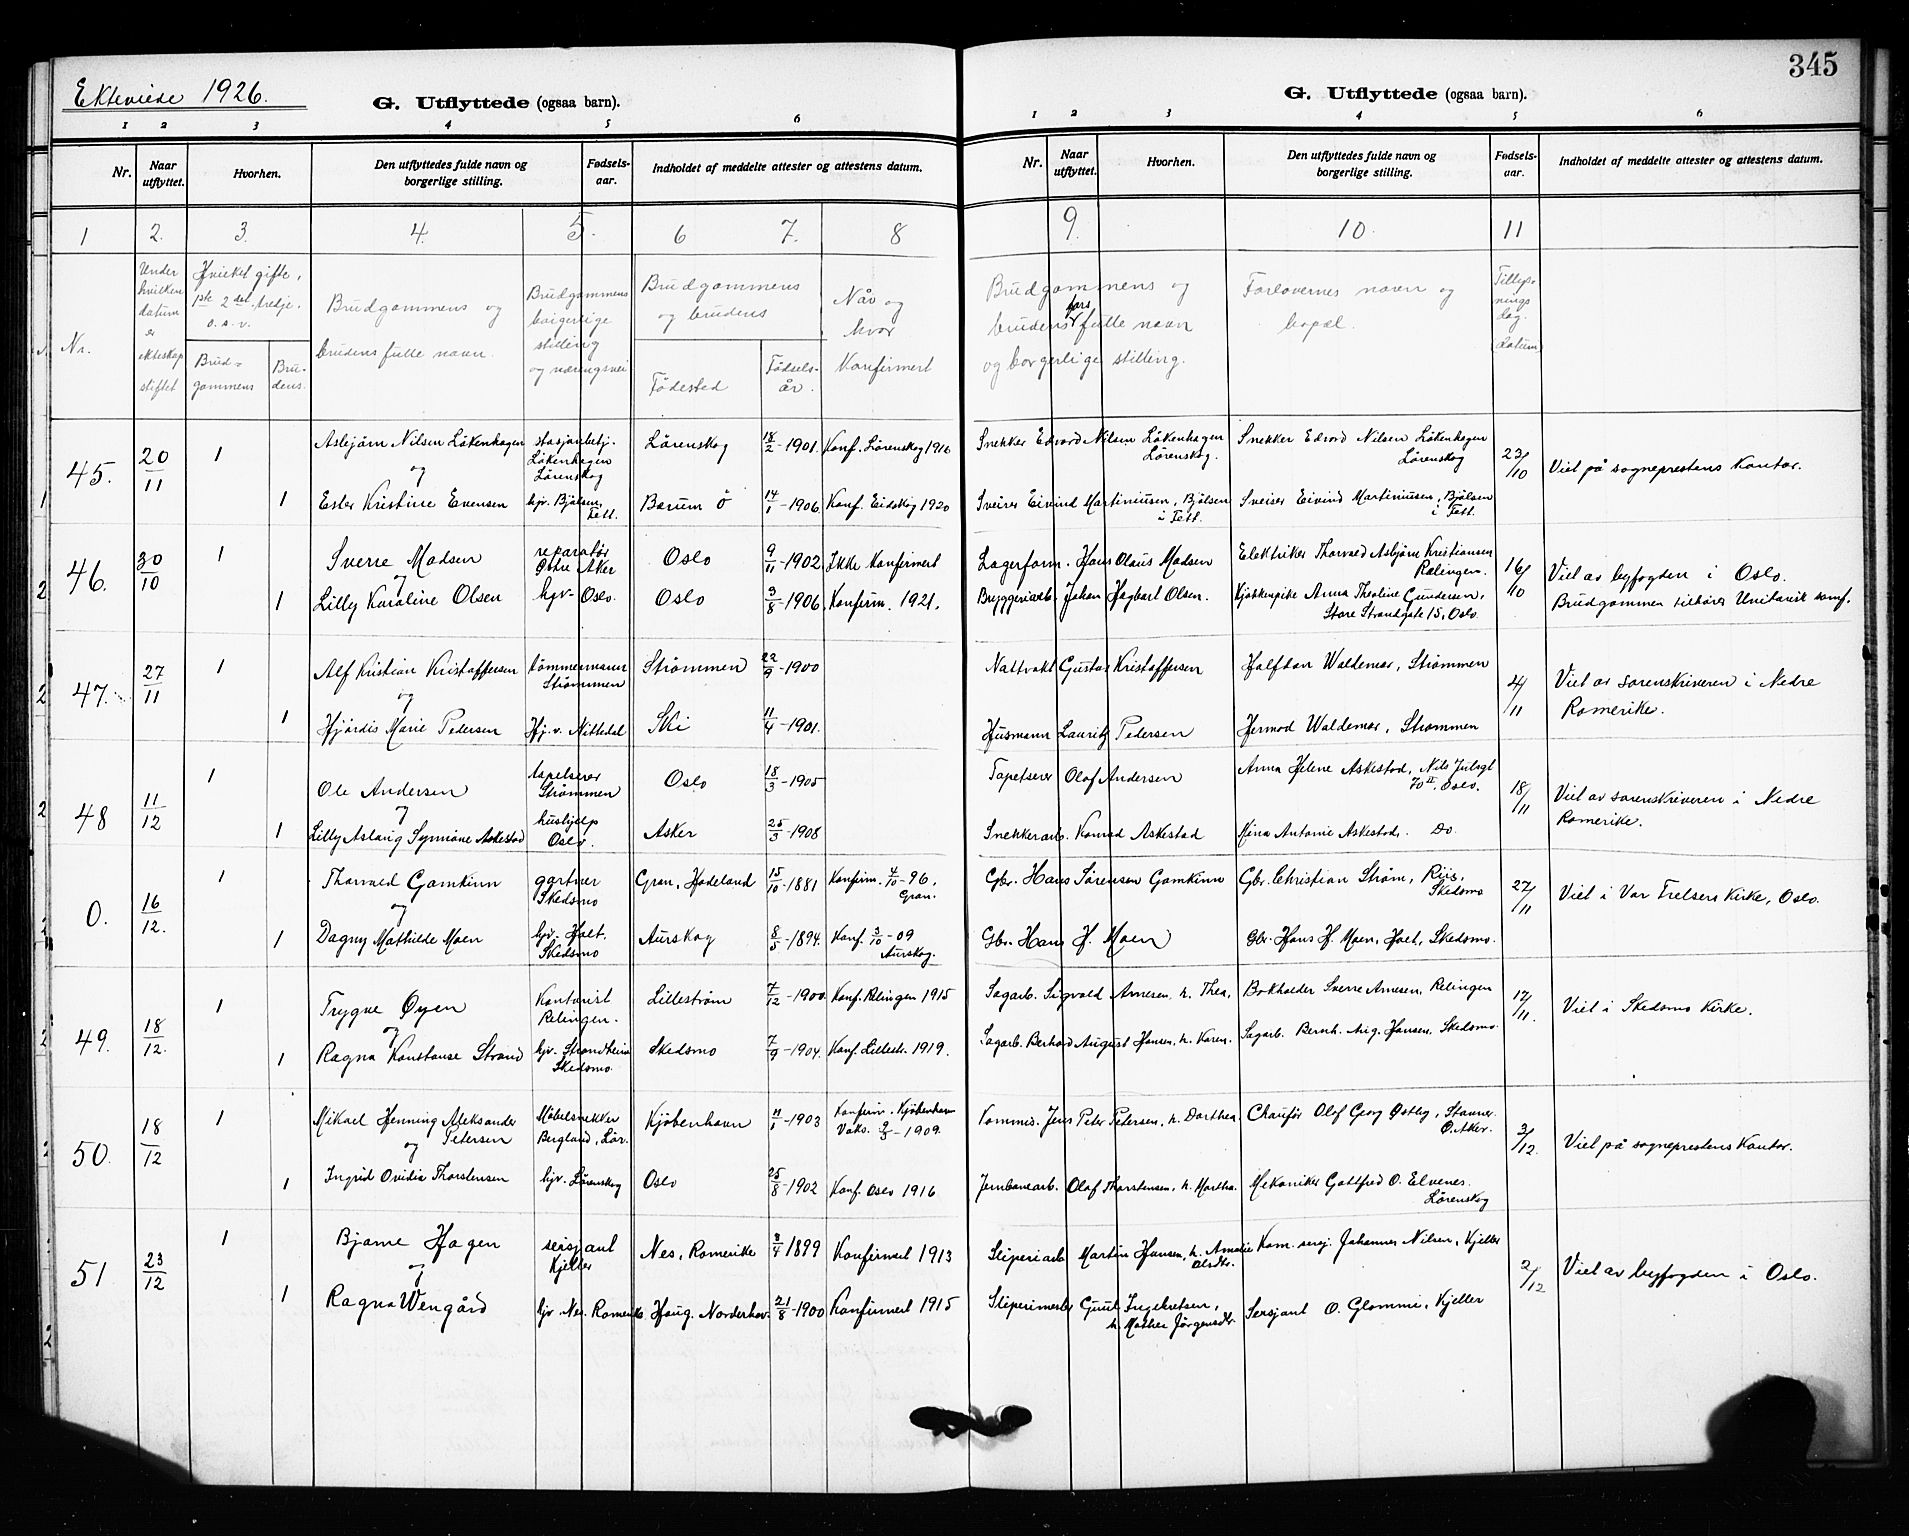 345
Ekteviede 1926.
G. Utflyttede (ogsaa barn).
1 2 3 4 5 6
Nr. Naar utflyttet. Hvorhen. Den utflyttedes fulde navn og borgerlige stilling. Fødsels-aar. Indholdet af meddelte attester og attestens datum.
G. Utflyttede (ogsaa barn).
1 2 3 4 5 6
Nr. Naar utflyttet. Hvorhen. Den utflyttedes fulde navn og borgerlige stilling. Fødsels-aar. Indholdet af meddelte attester og attestens datum.
1 2. 3. 4. 5. 6 7. 8 9. 10. 11
Nr. Under hvilken datum er ekteskap stiftet
Hvilket gifte, 1ste 2det tredje. o.s.v. Brud=gommens Bru-dens.
Brudgommens og brudens fulle navn.
Brudgommens borgerlige stilling og næringsvei
Brudgommens og brudens Fødested Fødsels-år.
Når og hvor Konfirmert
Brudgommens og brudens fars fulle navn og borgerlige stilling.
Forlovernes navn og bopæl.
datum
45. 20/11 1 Asbjørn Nilsen Løkenhagen stasjonbetj. Løkenhagen Lørenskog Lørenskog 18/2-1901. Konf. Lørenskog 1916 Snekker Edvard Nilsen Løkenhagen Lørenskog. Snekker Edvard Nilsen Løkenhagen Lørenskog 23/10 Viet på sogneprestens Kontor.
og
1 Ester Kristine Evensen hjv. Bjølsen Fett. Bærum Ø 14/1-1906. Konf. Eidskog 1920 Sveiser Eivind Martiniusen, Bjølsen i Fett. Sveiser Eivind Martiniusen, Bjølsen i Fett.
46. 30/10 1 Sverre Madsen reparatør Østre Aker Oslo 9/11-1902. Ikke Konfirmert Lagerform. Hans Olaus Madsen Elektriker Thorvald Asbjørn Kristiansen Rælingen. 16/10 Viet av byfogden i Oslo.
og
1 Lilly Karoline Olsen hjv- Oslo. Oslo 3/8-1906. Konfirm. 1921. Bryggeriarb. Johan Hagbart Olsen. Kjøkkenpike Anna Theoline Gundersen, Store Strandgate 15, Oslo Brudgommen tilhører Unitarisk samf.
47. 27/11 1 Alf Kristian Kristoffersen tømmermann Strømmen Strømmen 22/9-1900 Nattvakt Gustav Kristoffersen Halfdan Waldemar, Strømmen 4/11 Viet av sorenskriveren i Nedre Romerike.
og
1 Hjørdis Marie Pedersen Hj. v. Nittedal Ski 11/4-1901. Husmann Lauritz Pedersen Hermod Waldemar, Strømmen
48 11/12 1 Ole Andersen tapetserer Strømmen Oslo 18/3-1905 Tapetserer Olaf Andersen Anna Helene Askestad, Nils Juelsgt 70 II. Oslo. 18/11 Viet av sorenskriveren i Nedre Romerike.
og
1 Lilly Aslaug Synnøve Askestad hushjelp Oslo. Asker 25/3-1908 Snekkerarb. Konrad Askestad Antonie Askestad. Do.
0. 16/12. 1 Thorvald Gamkinn gartner Skedsmo Gran, Hadeland 15/10-1881 Konfirm. 4/10-96, Gran. Gbr. Hans Sørensen Gamkinn Gbr. Christian Strøm, Riis, Skedsmo 27/11 Viet i Vor Frelsers Kirke, Oslo.
og
1 Dagny Mathilde Moen hjv- Holt, Skedsmo Aurskog 8/5-1894. Konf. 3/10-09 Aurskog. Gbr. Hans H. Moen Gbr. Hans H. Moen, Holt, Skedsmo.
49. 18/12. 1 Trygve Øyen Kontorist Relingen. Lillestrøm 7/12-1900. Konf. Relingen 1915 Sagarb. Sigvald Arnesen, h. Thea, Bokholder Sverre Arnesen, Relingen 17/11. Viet i Skedsmo Kirke.
og
1 Ragna Konstanse Strand hjv. Strandheim Skedsmo. Skedsmo 7/9-1904. Konf. Lillestr. 1919. Sagarb. Berhard August Hansen, h. Karen. Sagarb. Bernh. Aug. Hansen, Skedsmo.
50. 18/12 1 Mikael Henning Aleksander Petersen Møbelsnekker Bergland, Lør. Kjøbenhavn 11/1-1903 Konfirm. Kjøbenhavn 2/5-1909. Kommis. Jens Peter Petersen, h. Dorthea. Chaufør Olaf Georg Østby, Stovner Ø. Aker. 3/12. Viet på sogneprestens Kontor.
og
1 Ingrid Ovidia Thorstensen hjv. Lørenskog Oslo 25/8-1902 Konf. Oslo 1916 Jernbanearb. Olaf Thorstensen, h. Martha. Mekaniker Gottfred O. Elvenes. Lørenskog
51. 23/12 1 Bjarne Hagen sersjant Kjeller Nes, Romerike 3/4 1899 Konfirmert 1913 Sliperiarb Martin Hansen, h. Amalie Olsdtr. Kom. sersj. Johannes Nilsen, Kjeller 2/12 Viet av byfogden i Oslo.
og
1 Ragna Wengård hjv Nes. Romerike Haug, Norderhov. 21/8-1900 Konfirmert 1915 Sliperimester Gunt Ingebretsen, h. Mathea Jørgensdtr. Sersjant O. Glommi, Kjeller